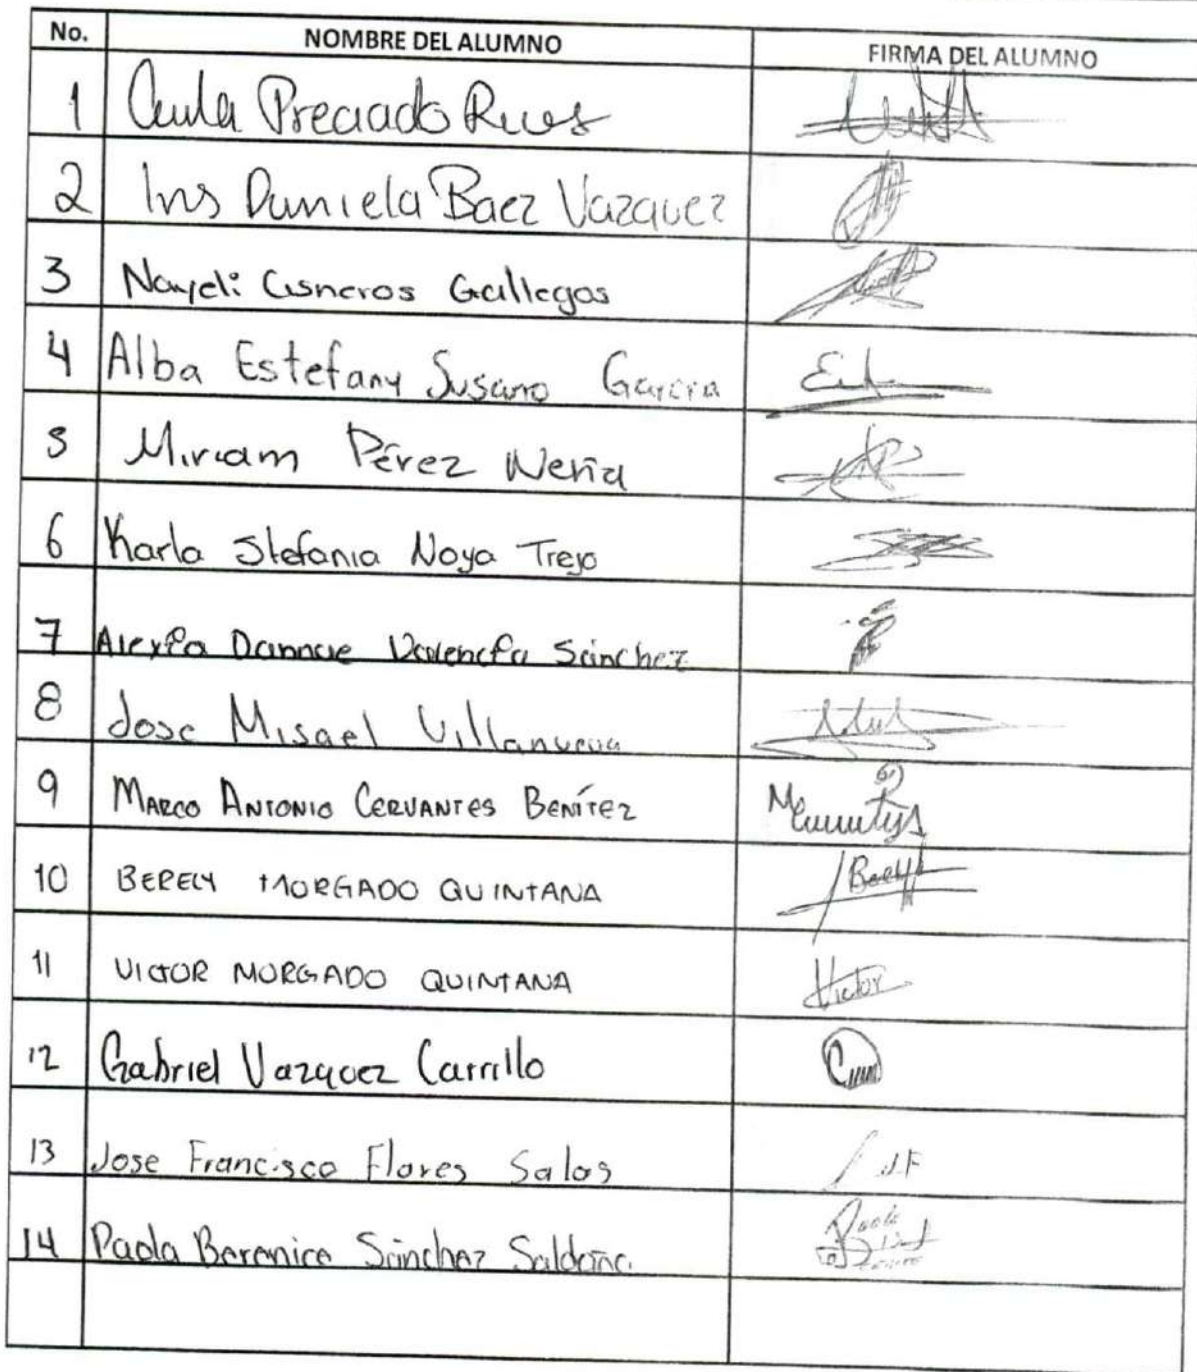 No. NOMBRE DEL ALUMNO FIRMA DEL ALUMNO
1 Preciado Rios
2 Daniela Baez Vazquez
3 Nayeli Cisneros Gallegos
4 Alba Estefany Susano Garcia
5 Miriam Pérez Neria
6 Karla Stefania Noya Trejo
7 Alexia Dannae Valencia Sánchez
8 Jose Misael Villanueva
9 MARCO ANTONIO CERVANTES BENÍTEZ
10 BERELY MORGADO QUINTANA
11 VICTOR MORGADO QUINTANA Victor
12 Gabriel Vazquez Carrillo
13 Jose Francisco Flores Salas J.F
14 Paola Berenice Sánchez Saldaña Paola